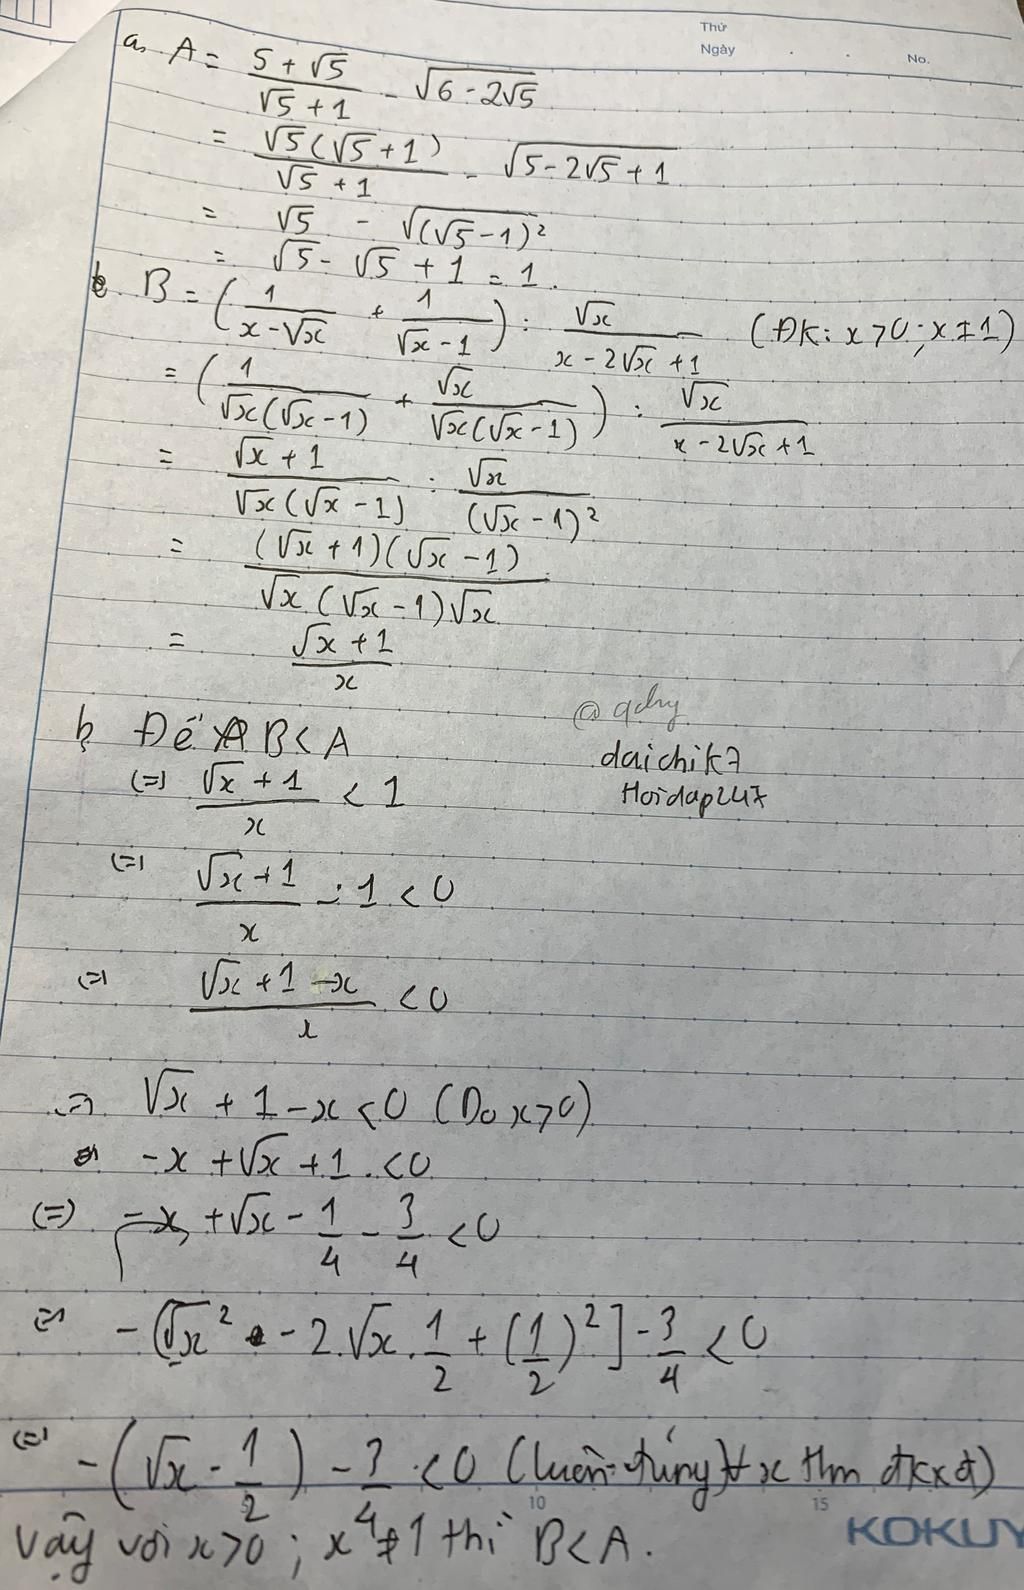 Thứ
Ngày . . No.
a, A = (5 + √5)/(√5 + 1) - √(6 - 2√5)
= √5(√5 + 1)/(√5 + 1) - √(5 - 2√5 + 1)
= √5 - √((√5 - 1)²
= √5 - √5 + 1 = 1.
B = (1/(x - √x) + 1/(√x - 1)) : √x/(x - 2√x + 1) (ĐK: x > 0; x ≠ 1)
= (1/(√x(√x - 1)) + √x/(√x(√x - 1))) : √x/(x - 2√x + 1)
= (√x + 1)/(√x(√x - 1)) : √x/(√x - 1)²
= (√x + 1)(√x - 1)/(√x(√x - 1)√x)
= (√x + 1)/x
@qchy
b, Để B < A
daichik7
(=) (√x + 1)/x < 1
Hoidap247
(=) (√x + 1)/x - 1 < 0
(=) (√x + 1 - x)/x < 0
=> √x + 1 - x < 0 (Do x > 0)
-x + √x + 1 < 0
(=) -x + √x - 1/4 - 3/4 < 0
(=) -(√x² - 2.√x.1/2 + (1/2)²] - 3/4 < 0
(=) -(√x - 1/2) - 3/4 < 0 (luôn đúng ∀ x thm đkxđ)
10 15
Vậy với x > 0; x ≠ 1 thì B < A.
KOKUY